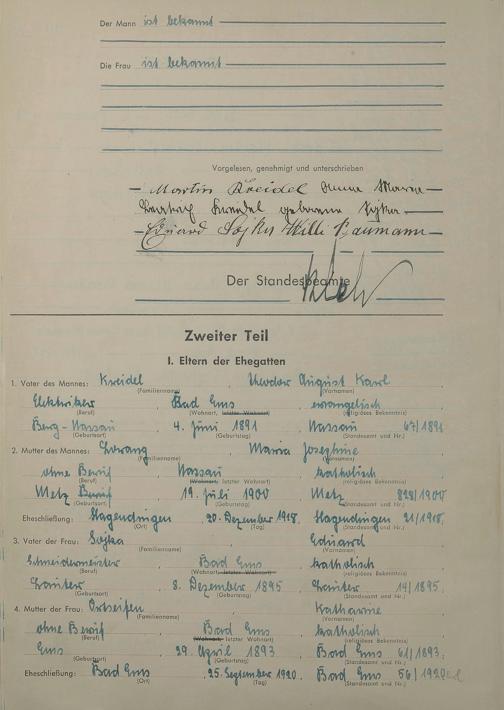 Der Mann ist bekannt
Die Frau ist bekannt
Vorgelesen, genehmigt und unterschrieben
Martin Kreidel Anna Maria
Kreidel geborene Sojka
Eduard Sojka Willi Baumann
Der Standesbeamte
Zweiter Teil
I. Eltern der Ehegatten
1. Vater des Mannes: Kreidel, Theodor August Karl
(Familienname) (Vornamen)
Elektriker, Bad Ems, evangelisch
(Beruf) (Wohnort, letzter Wohnort) (religiöses Bekenntnis)
Berg-Nassau, 4. Juni 1891, Nassau 67/1891
(Geburtsort) (Geburtstag) (Standesamt und Nr.)
2. Mutter des Mannes: Maria Josephine
(Familienname) (Vornamen)
ohne Beruf, Nassau, katholisch
(Beruf) (Wohnort, letzter Wohnort) (religiöses Bekenntnis)
Metz, 19. Juli 1900, Metz 828/1900
(Geburtsort) (Geburtstag) (Standesamt und Nr.)
Eheschließung: Hagendingen, 20. Dezember 1918, Hagendingen 21/1918.
(Ort) (Tag) (Standesamt und Nr.)
3. Vater der Frau: Sojka, Eduard
(Familienname) (Vornamen)
Schneidermeister, Bad Ems, katholisch
(Beruf) (Wohnort, letzter Wohnort) (religiöses Bekenntnis)
8. Dezember 1895, 14/1895.
(Geburtsort) (Geburtstag) (Standesamt und Nr.)
4. Mutter der Frau: Ortseifen, Katharine
(Familienname) (Vornamen)
ohne Beruf, Bad Ems, katholisch
(Beruf) (Wohnort, letzter Wohnort) (religiöses Bekenntnis)
Ems, 29. April 1893, Bad Ems 61/1893.
(Geburtsort) (Geburtstag) (Standesamt und Nr.)
Eheschließung: Bad Ems, 25. September 1920. Bad Ems 56/1920
(Ort) (Tag) (Standesamt und Nr.)